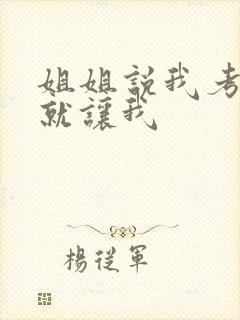 姐姐説我考
就讓我
楊從軍